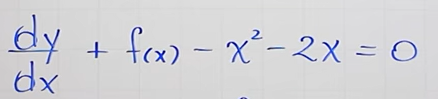 dy/dx + f(x) - x² - 2x = 0